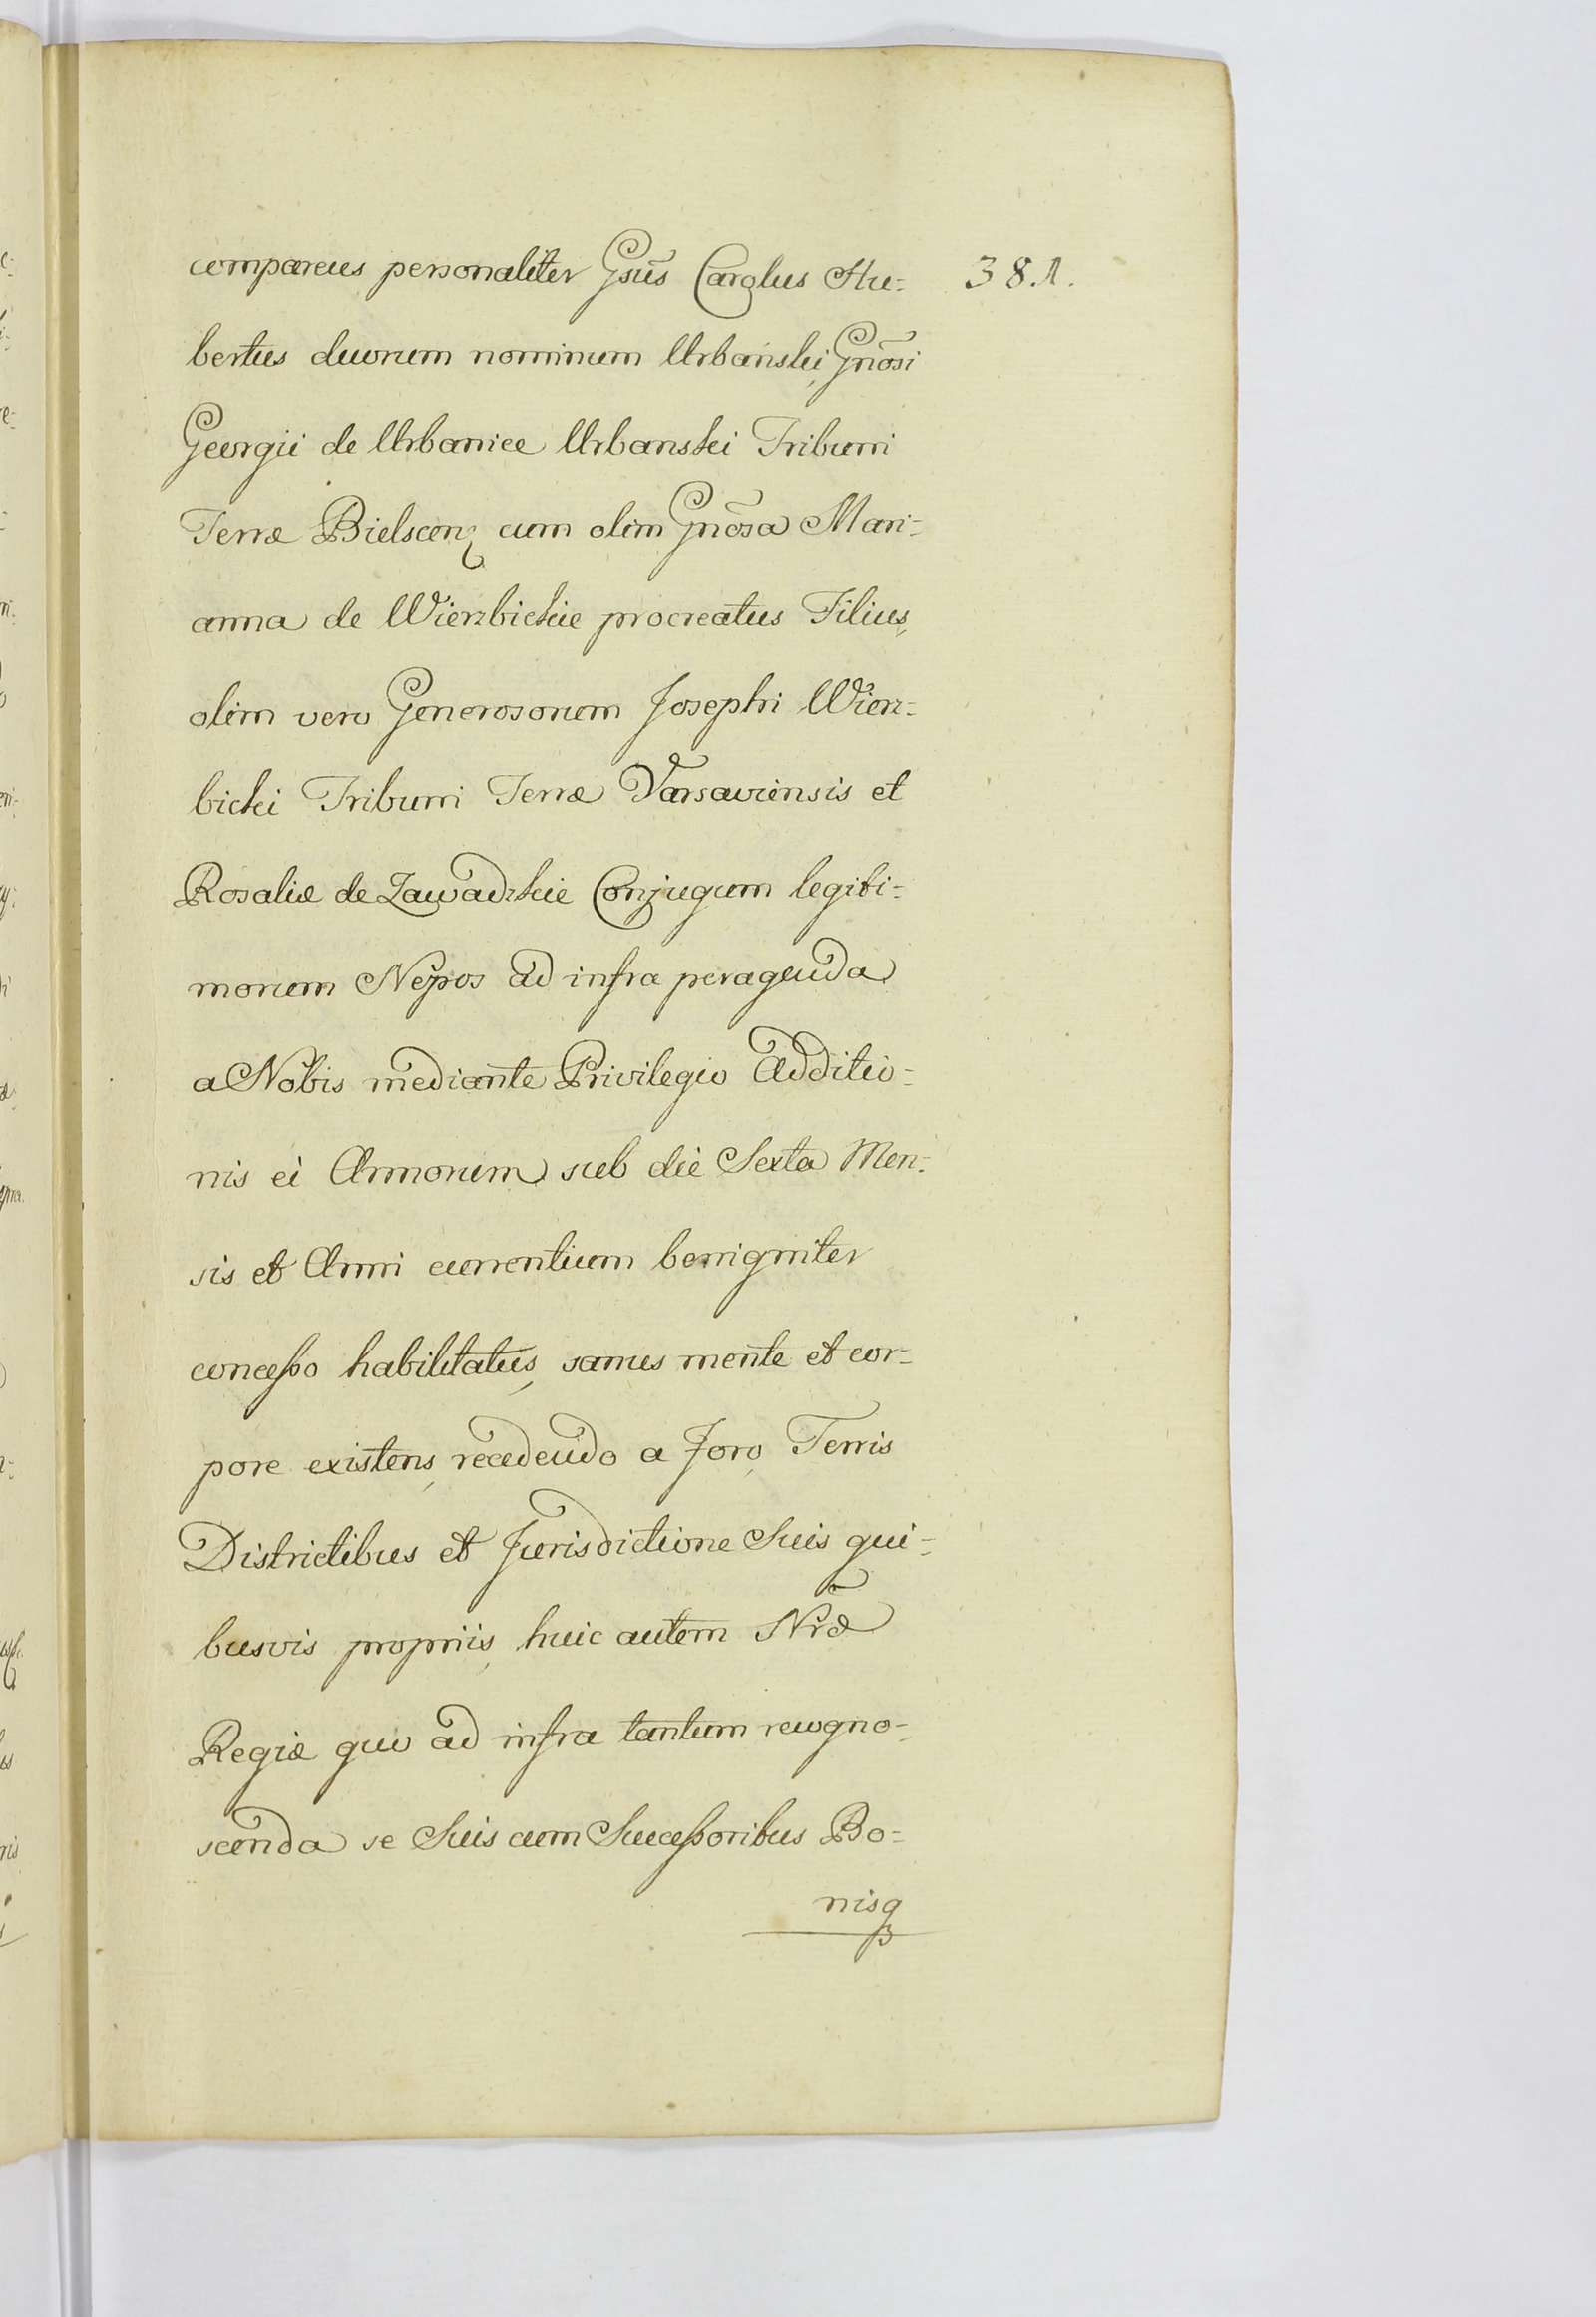 comparens personaliter Gsũs Carolus Hu= 381.
bertus duorum nominum Urbański, Gnõsi
Georgii de Urbanice Urbanski Tribuni
Terræ Bielscen cum olim Gnõsa Mari=
anna de Wierzbickie procreatus Filius,
olim vero Generosorum Josephi Wierz=
bicki Tribuni Terræ Varsaviensis et
Rosaliæ de Zawadzkie Conjugum legiti=
morum Nepos ad infra peragenda
a Nobis mediante Privilegio Additio=
nis ei Annorum sub die Sexta Men=
sis et Anni currentium benigniter
concesso habilitatus, sanus mente et cor=
pore existens, recedendo a Foro, Terris
Districtibus et Jurisdictione Suis qui=
busvis propriis, huic autem Nræ̃
Regiæ quo ad infra tantum recogno=
scenda se Suis cum Successoribus Bo=
nisq